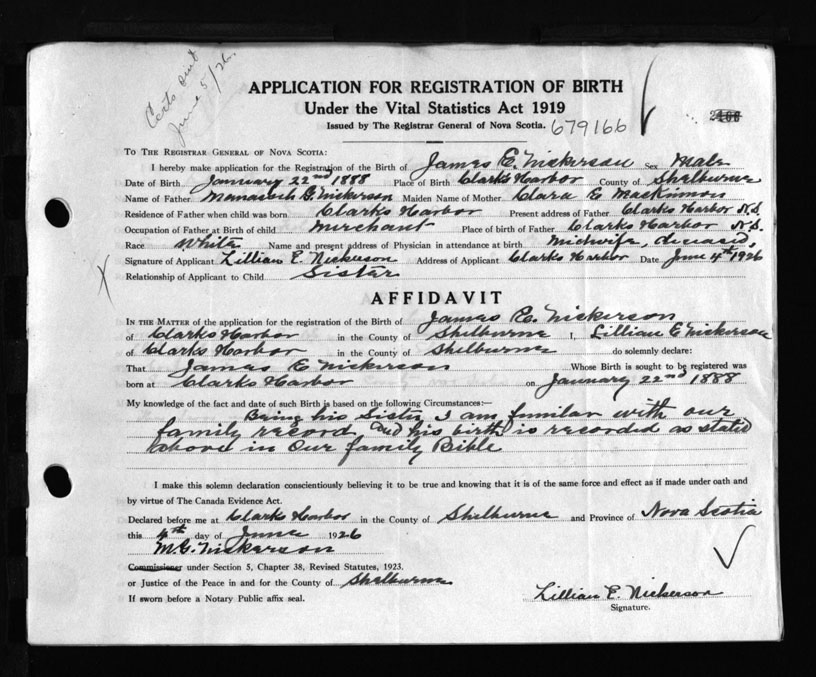 Certs sent
June 5/26.
APPLICATION FOR REGISTRATION OF BIRTH
Under the Vital Statistics Act 1919
Issued by The Registrar General of Nova Scotia. 679166
To The Registrar General of Nova Scotia:
I hereby make application for the Registration of the Birth of James E. Nickerson Sex Male
Date of Birth January 22nd 1888 Place of Birth Clarks Harbor County of Shelburne
Name of Father Manasseh G. Nickerson Maiden Name of Mother Clara E MacKinnon
Residence of Father when child was born Clarks Harbor Present address of Father Clarks Harbor N.S.
Occupation of Father at Birth of child Merchant Place of birth of Father Clarks Harbor N.S.
Race White Name and present address of Physician in attendance at birth Midwife, deceased,
Signature of Applicant Lillian E. Nickerson Address of Applicant Clarks Harbor Date June 4th 1926
Relationship of Applicant to Child Sister
AFFIDAVIT
In the Matter of the application for the registration of the Birth of James E. Nickerson
of Clarks Harbor in the County of Shelburne I, Lillian E Nickerson
of Clarks Harbor in the County of Shelburne do solemnly declare:
That James E Nickerson Whose Birth is sought to be registered was
born at Clarks Harbor on January 22nd 1888
My knowledge of the fact and date of such Birth is based on the following Circumstances:—
Being his Sister I am familar with our
family record and his birth is recorded as stated
above in Our family Bible
I make this solemn declaration conscientiously believing it to be true and knowing that it is of the same force and effect as if made under oath and
by virtue of The Canada Evidence Act.
Declared before me at Clarks Harbor in the County of Shelburne and Province of Nova Scotia
this 4th day of June 1926
M.G. Nickerson
Commissioner under Section 5, Chapter 38, Revised Statutes, 1923.
or Justice of the Peace in and for the County of Shelburne
If sworn before a Notary Public affix seal.
Lillian E. Nickerson
Signature.